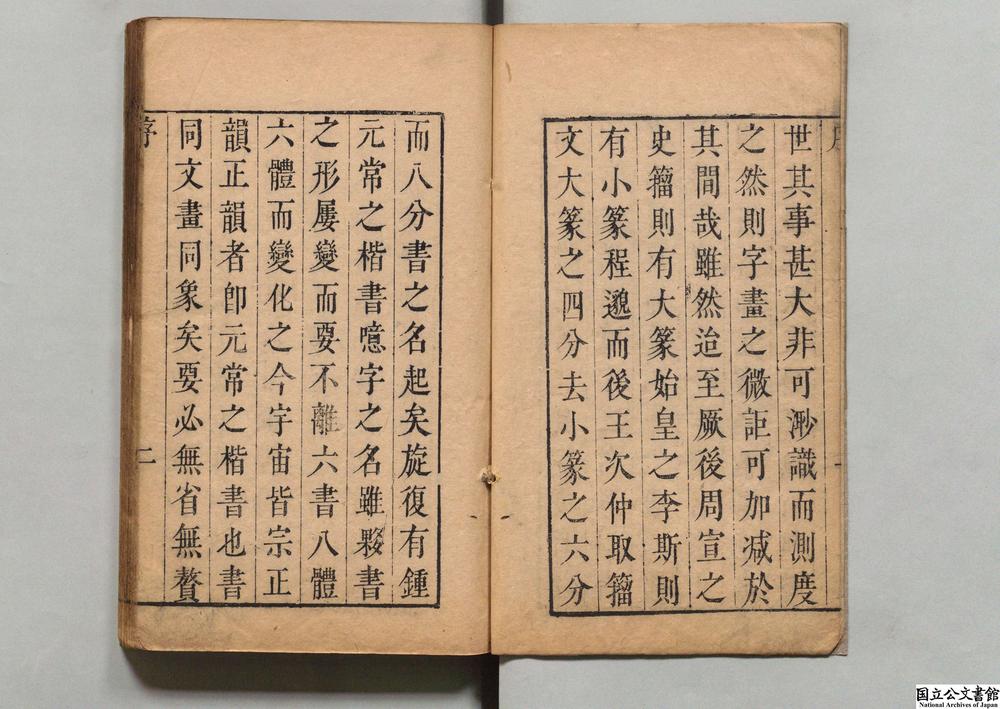 世其事甚大非可渺識而測度
之然則字畫之微詎可加减於
其間哉雖然迨至厥後周宣之
史籀則有大篆始皇之李斯則
有小篆程邈而後王次仲取籀
文大篆之四分去小篆之六分
而八分書之名起矣旋復有鍾
元常之楷書噫字之名雖夥書
之形屢變而要不離六書八體
六體而變化之今宇宙皆宗正
韻正韻者卽元常之楷書也書
同文畫同象矣要必無省無贅
序 二
国立公文書館
National Archives of Japan